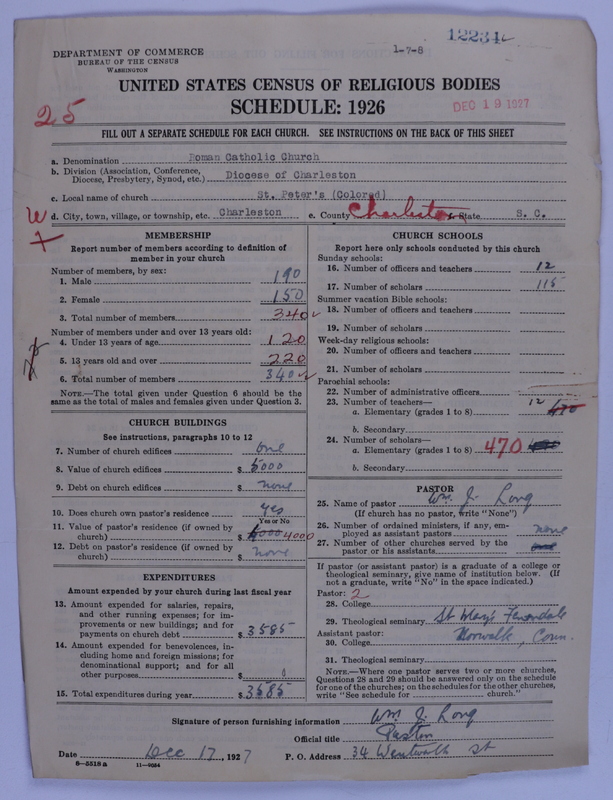 12234
DEPARTMENT OF COMMERCE
BUREAU OF THE CENSUS
WASHINGTON
1-7-8
UNITED STATES CENSUS OF RELIGIOUS BODIES
SCHEDULE: 1926
DEC 19 1927
25
FILL OUT A SEPARATE SCHEDULE FOR EACH CHURCH. SEE INSTRUCTIONS ON THE BACK OF THIS SHEET
a. Denomination Roman Catholic Church
b. Division (Association, Conference, Diocese, Presbytery, Synod, etc.) Diocese of Charleston
c. Local name of church St. Peter's (Colored)
d. City, town, village, or township, etc. Charleston e. County Charleston f. State S. C.
MEMBERSHIP
Report number of members according to definition of
member in your church
Number of members, by sex:
1. Male 190
2. Female 150
3. Total number of members 340
Number of members under and over 13 years old:
4. Under 13 years of age 120
5. 13 years old and over 220
6. Total number of members 340
NOTE.—The total given under Question 6 should be
same as the total of males and females given under Question 3.
CHURCH BUILDINGS
See instructions, paragraphs 10 to 12
7. Number of church edifices one
8. Value of church edifices $ 5000
9. Debt on church edifices $ none
10. Does church own pastor's residence yes
Yes or No
11. Value of pastor's residence (if owned by
church) $ 4000
12. Debt on pastor's residence (if owned by
church) $ none
EXPENDITURES
Amount expended by your church during last fiscal year
13. Amount expended for salaries, repairs,
and other running expenses; for im-
provements or new buildings; and for
payments on church debt $ 3585
14. Amount expended for benevolences, in-
cluding home and foreign missions; for
denominational support; and for all
other purposes $ 0
15. Total expenditures during year $ 3585
CHURCH SCHOOLS
Report here only schools conducted by this church
Sunday schools:
16. Number of officers and teachers 12
17. Number of scholars 115
Summer vacation Bible schools:
18. Number of officers and teachers
19. Number of scholars
Week-day religious schools:
20. Number of officers and teachers
21. Number of scholars
Parochial schools:
22. Number of administrative officers
23. Number of teachers—
a. Elementary (grades 1 to 8) 12 470
b. Secondary
24. Number of scholars—
a. Elementary (grades 1 to 8) 470
b. Secondary
PASTOR
25. Name of pastor Wm J. Long
(If church has no pastor, write "None")
26. Number of ordained ministers, if any, em-
ployed as assistant pastors none
27. Number of other churches served by the
pastor or his assistants
If pastor (or assistant pastor) is a graduate of a college or
theological seminary, give name of institution below. (If
not a graduate, write "No" in the space indicated.)
Pastor: 2
28. College
29. Theological seminary St Mary's Ferndale
Assistant pastor: Norwalk, Conn.
30. College
31. Theological seminary
NOTE.—Where one pastor serves two or more churches,
Questions 28 and 29 should be answered only on the schedule
for one of the churches; on the schedules for the other churches,
write "See schedule for church."
Signature of person furnishing information Wm J. Long
Official title Pastor
Date Dec 17, 1927 P. O. Address 34 Wentworth St
8—5518a 11—9034